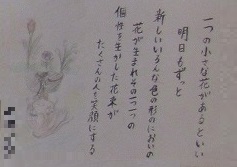 一つの小さな花があるといい
明日もずっと
新しいいろんな色の形のにおいの
花が生まれその一つ一つ
個性を生かした花束が
たくさんの人を笑顔にする